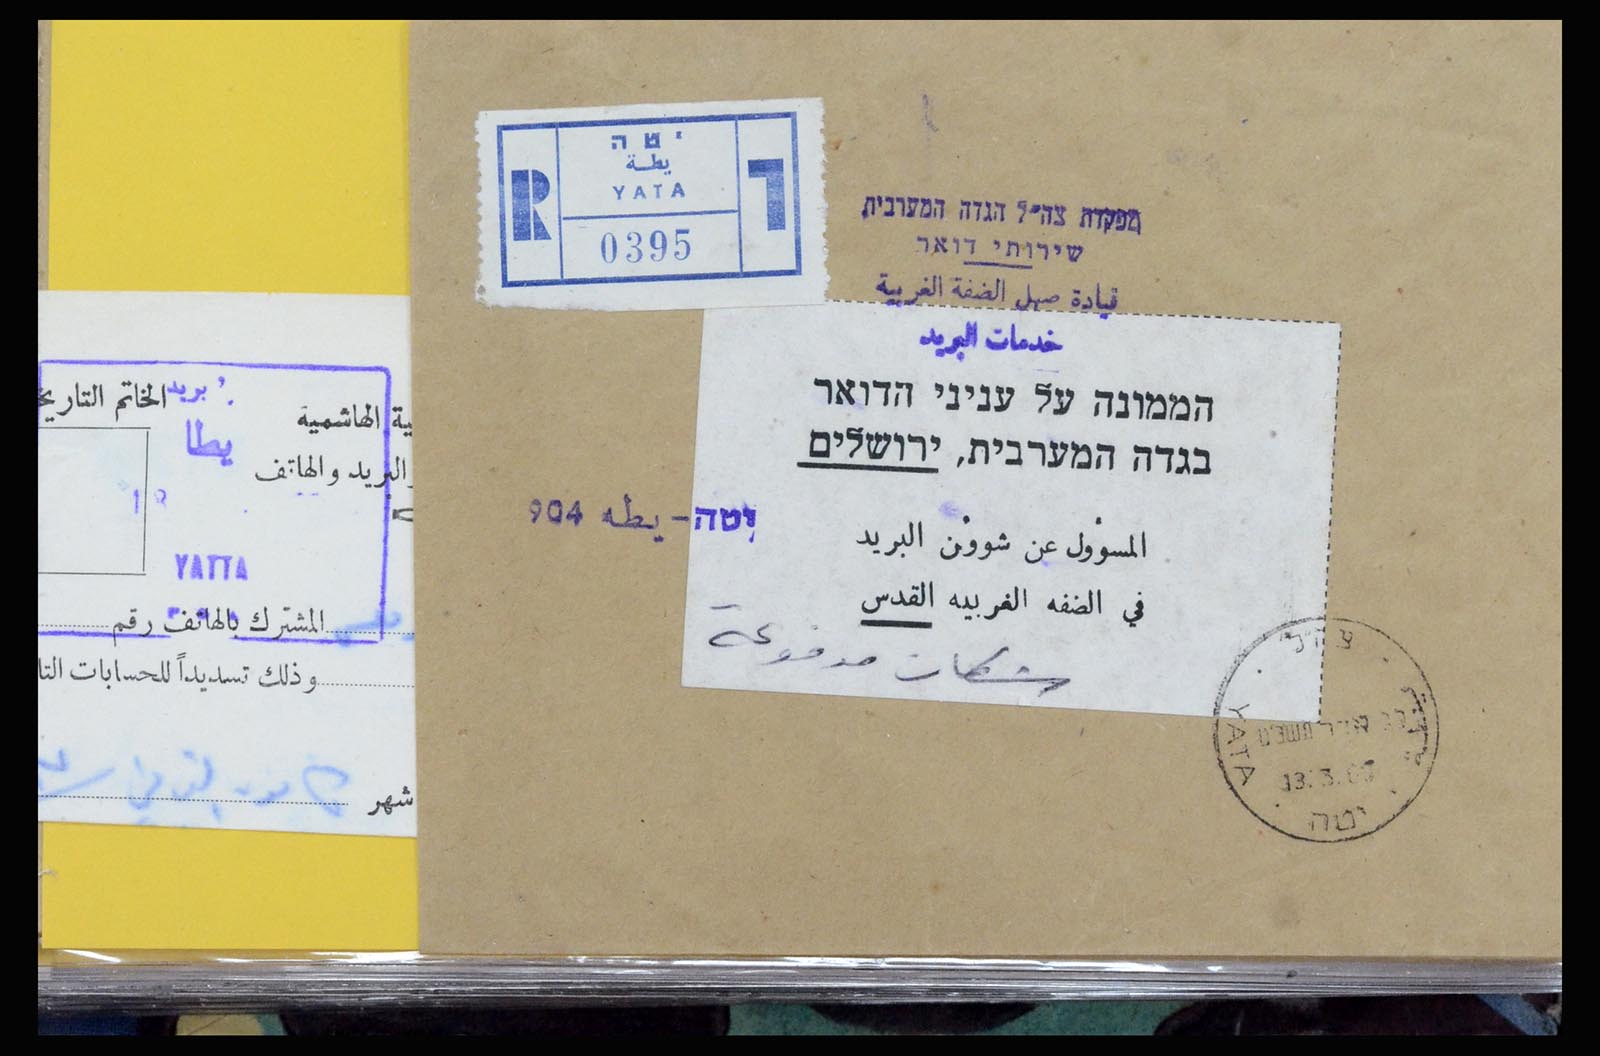 יטה
يطـة
YATA
R
ד
0395
מפקדת צה״ל הגדה המערבית
שירותי דואר
قيادة صهل الضفة الغربية
خدمات البريد
הממונה על עניני הדואר
בגדה המערבית, ירושלים
المسؤول عن شوؤن البريد
في الضفه الغربيه القدس
יטה - يطه 904
شكات مدفوعة
צה״ל
YATA
13.3.
יטה
ية الهاشمية
البريد والهاتف
الخاتم التاريخ
بريد
يطا
19
YATTA
المشترك بالهاتف رقم
وذلك تسديداً للحسابات التا
شهر